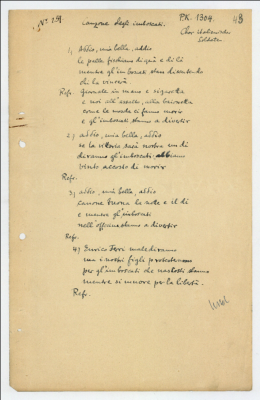 No 251
canzone degli imboscati.
P.K. 1304.
48
Chor italienischer
Soldaten
1) Addio, mia bella, addio
le palle fischiano di qua e di là
mentre gl'imboscati stan divertendo
chi lo vincerà
Refr. Giornale in mano e sigaretta
e noi all'assalto, alla baionetta
come le mosche ci fanno morir
e gl'imboscati stanno a divertir
2) addio, mia bella, addio
se la vittoria sarà nostra un dì
diranno gl'imboscati: abbiamo
vinto accosto di morir
Refr.
3) addio, mia bella, addio
canone buona la note e il dì
e mentre gl'imboscati
nell'officine stanno a divertir
Refr.
4) Enrico Feri malediranno
ma i nostri figli protesteranno
per gl'imboscati che nascosti stanno
mentre si muore per la libertà.
Refr.